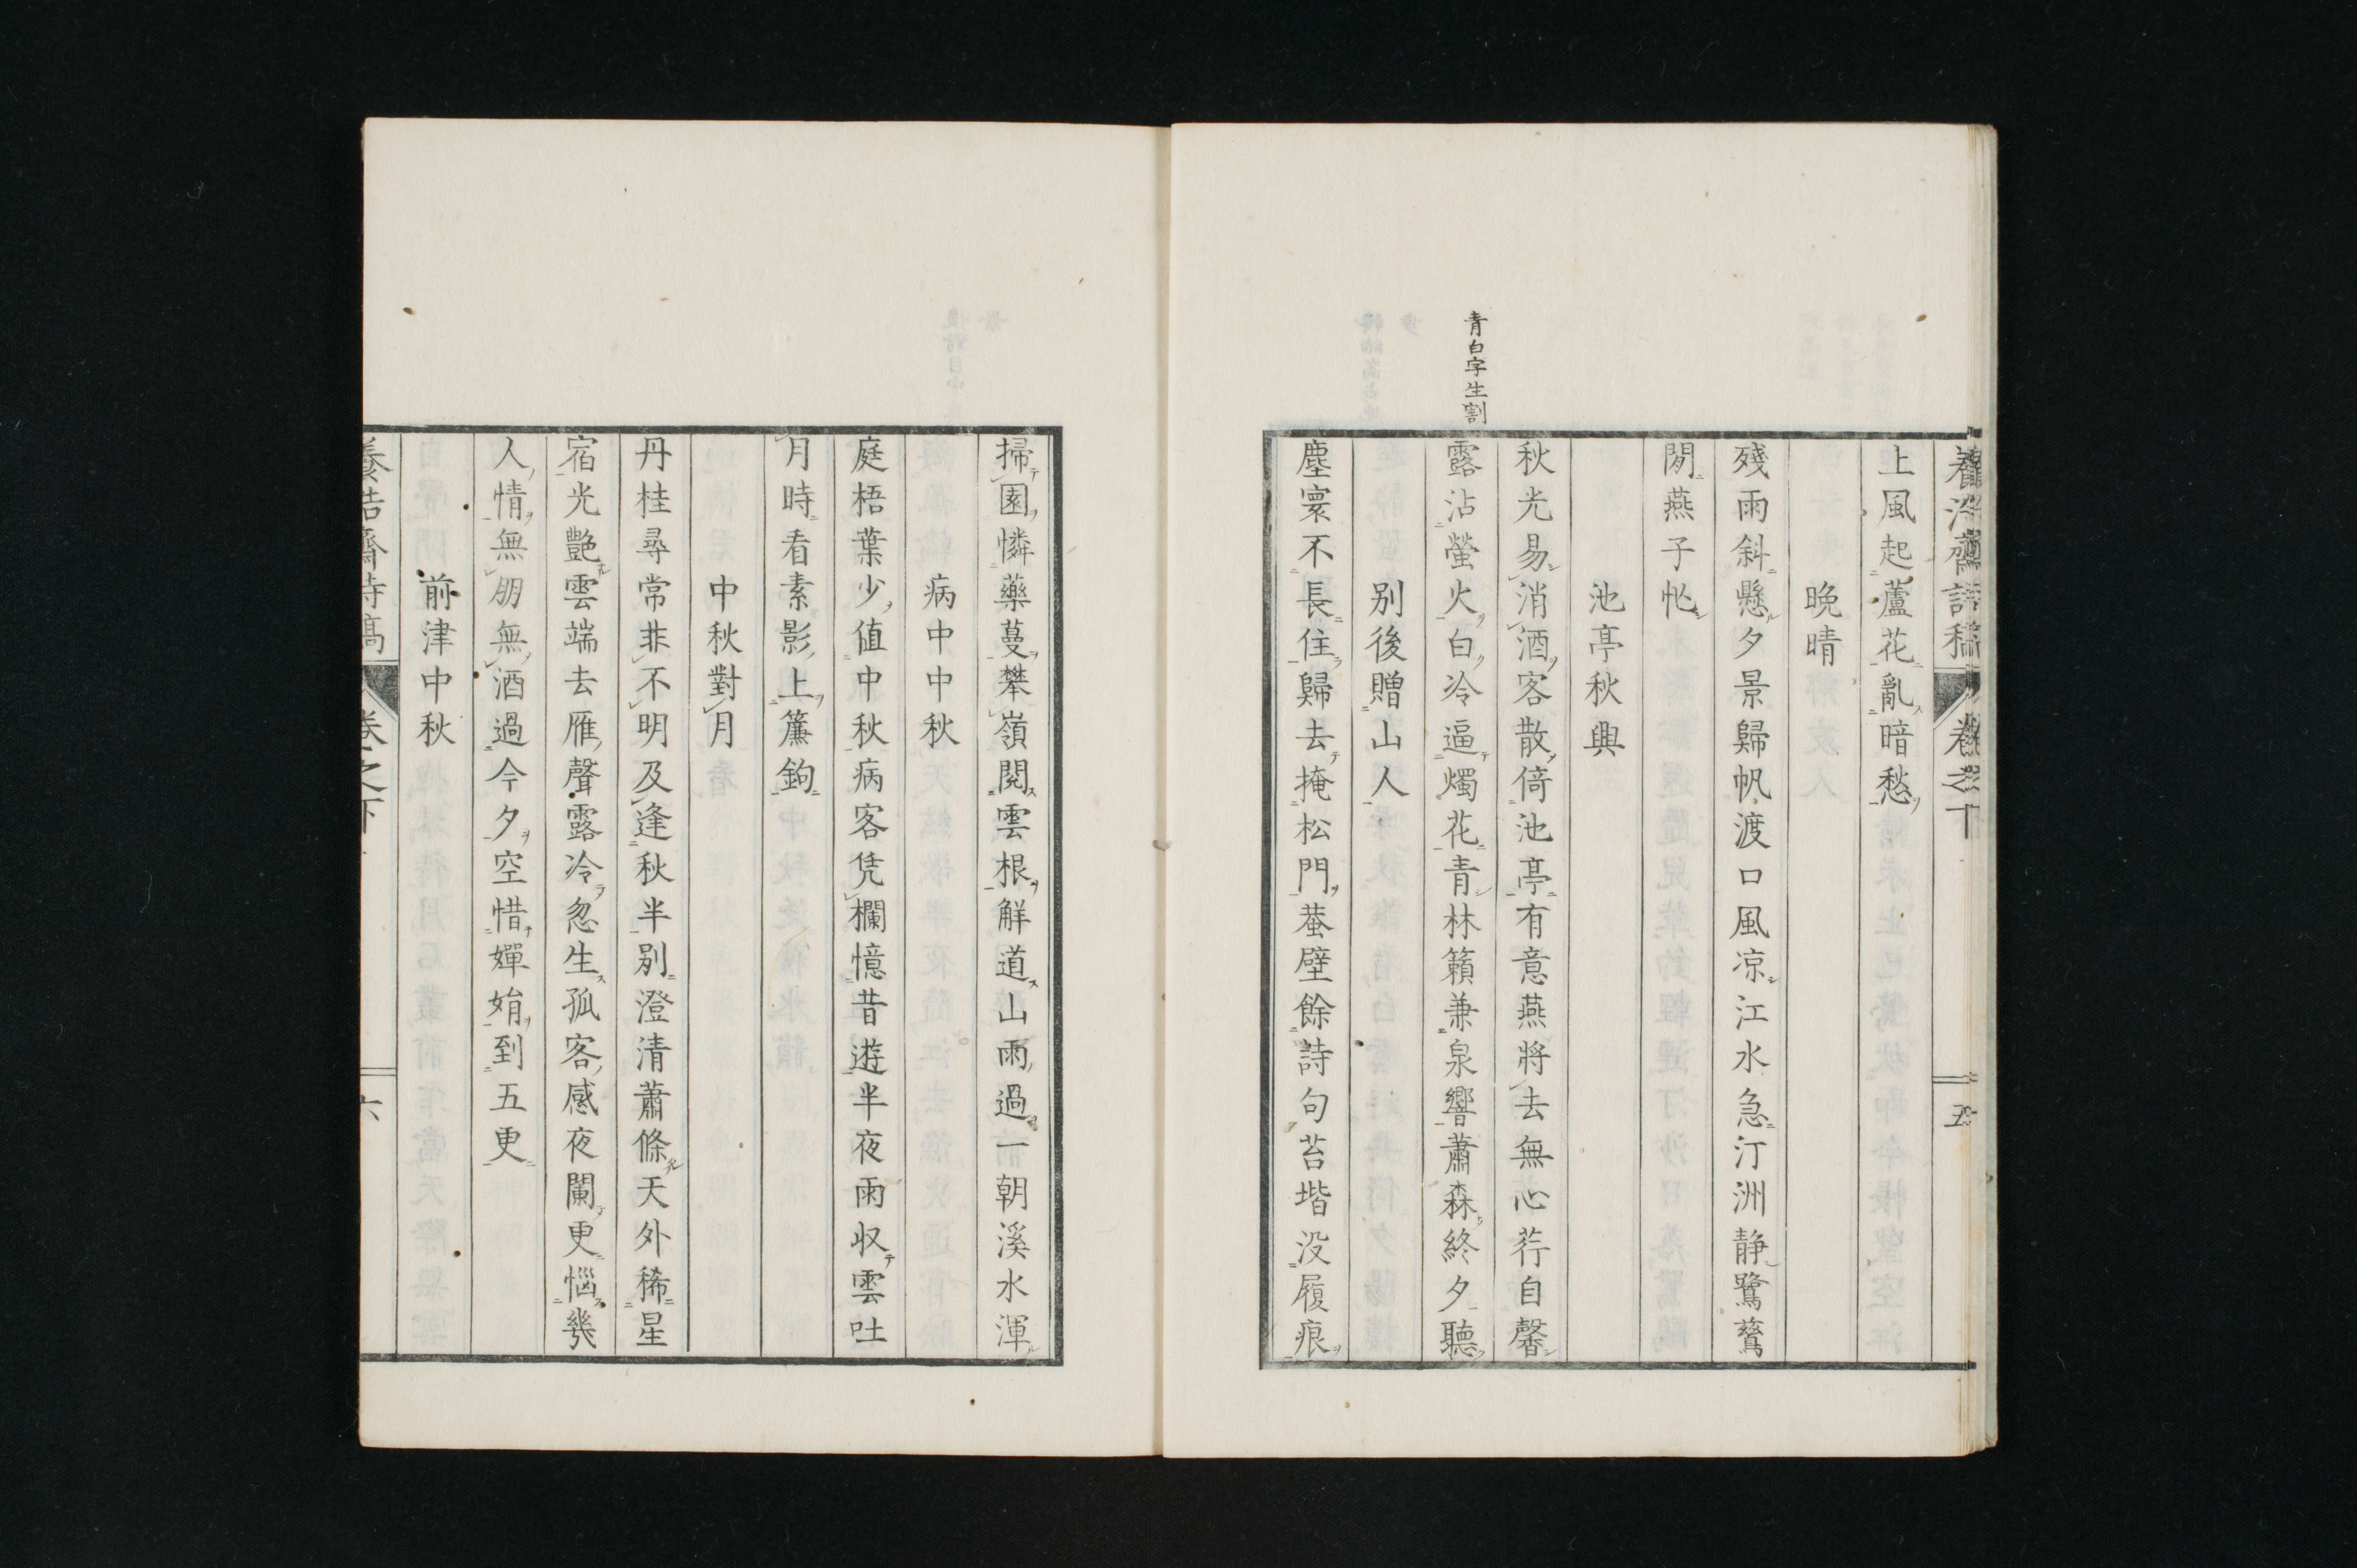 養浩齋詩稿 卷之下 五
上風起蘆花亂暗愁
晚晴
殘雨斜懸夕景歸帆渡口風凉江水急汀洲静鷺鶿
閒燕子忙
池亭秋興
秋光易消酒客散倚池亭有意燕將去無心荇自馨
青白字生割
露沾螢火白冷逼燭花青林籟兼泉響蕭森終夕聽
別後贈山人
塵寰不長住歸去掩松門蛬壁餘詩句苔堦没履痕
掃園憐藥蔓攀嶺閲雲根解道山雨過一朝溪水渾
病中中秋
庭梧葉少値中秋病客凭欄憶昔遊半夜雨収雲吐
月時看素影上簾鉤
中秋對月
丹桂尋常非不明及逢秋半別澄清蕭條天外稀星
宿光艷雲端去雁聲露冷忽生孤客感夜闌更惱幾
人情無朋無酒過今夕空惜嬋娟到五更
前津中秋
養浩齋詩稿 卷之下 六